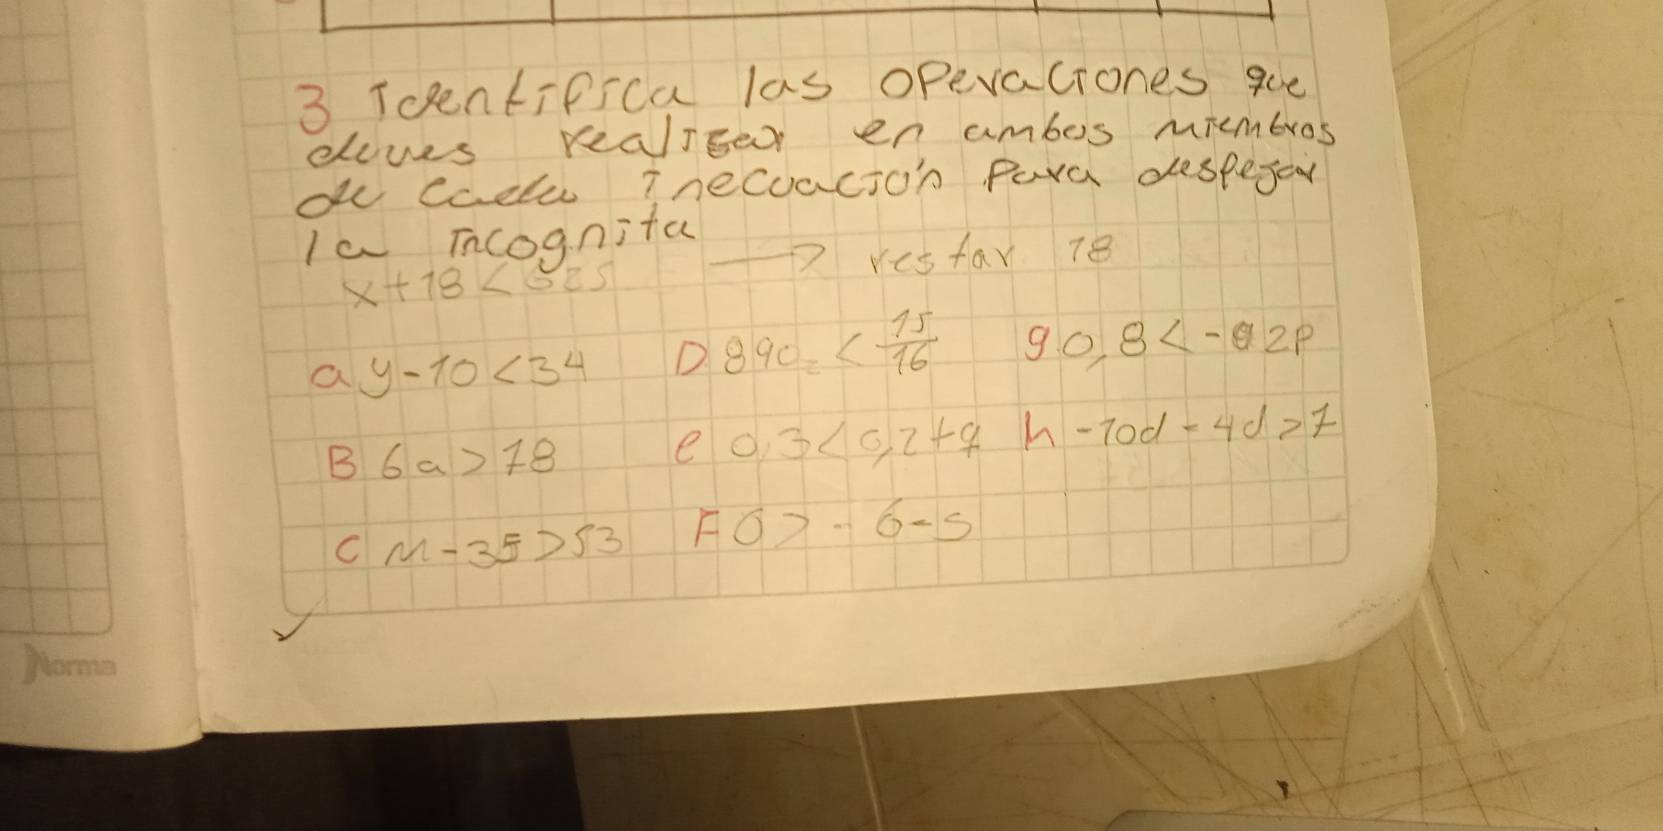 3 Identifica las operaciones que
deves realisar en ambos miembros
de cada inecuación para despejar
la incognita
x+18<625 → restar 18
a y-10<34 D 890 < 15/16 g 0,8<-92p
B 6a>18 e 0,3<0,2+q h -10d-4d>7
C m-35>53 F 0>-6-s
Norma